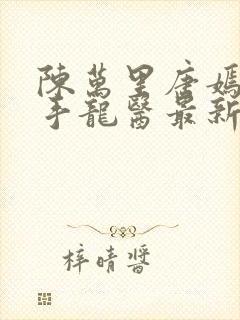 陳萬里唐嫣
手龍醫最新
梓晴醬